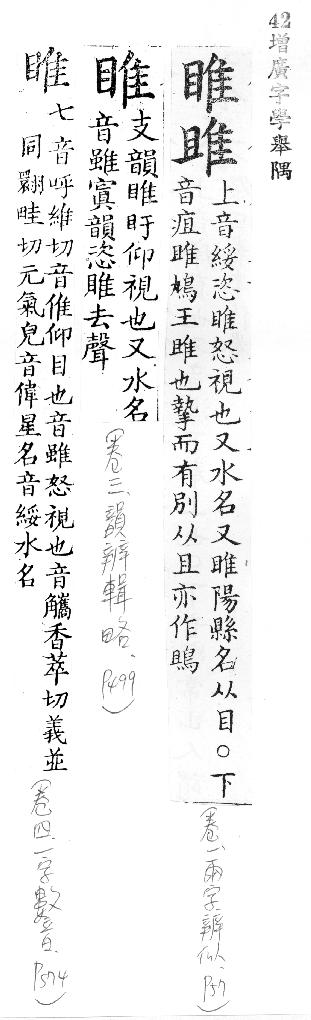 42增廣字學舉隅
睢雎
上音綏恣睢怒視也又水名又睢陽縣名从目○下
音疽雎鳩王雎也摯而有別从且亦作鴡
(卷一、兩字辨似、P57)
睢
支韻睢盱仰視也又水名
音雖寘韻恣睢去聲
(卷三、韻辨輯略、P499)
睢
七音呼維切音倠仰目也音雖怒視也音觿香萃切義並
同翾畦切元氣皃音偉星名音綏水名
(卷四、一字數音、P574)